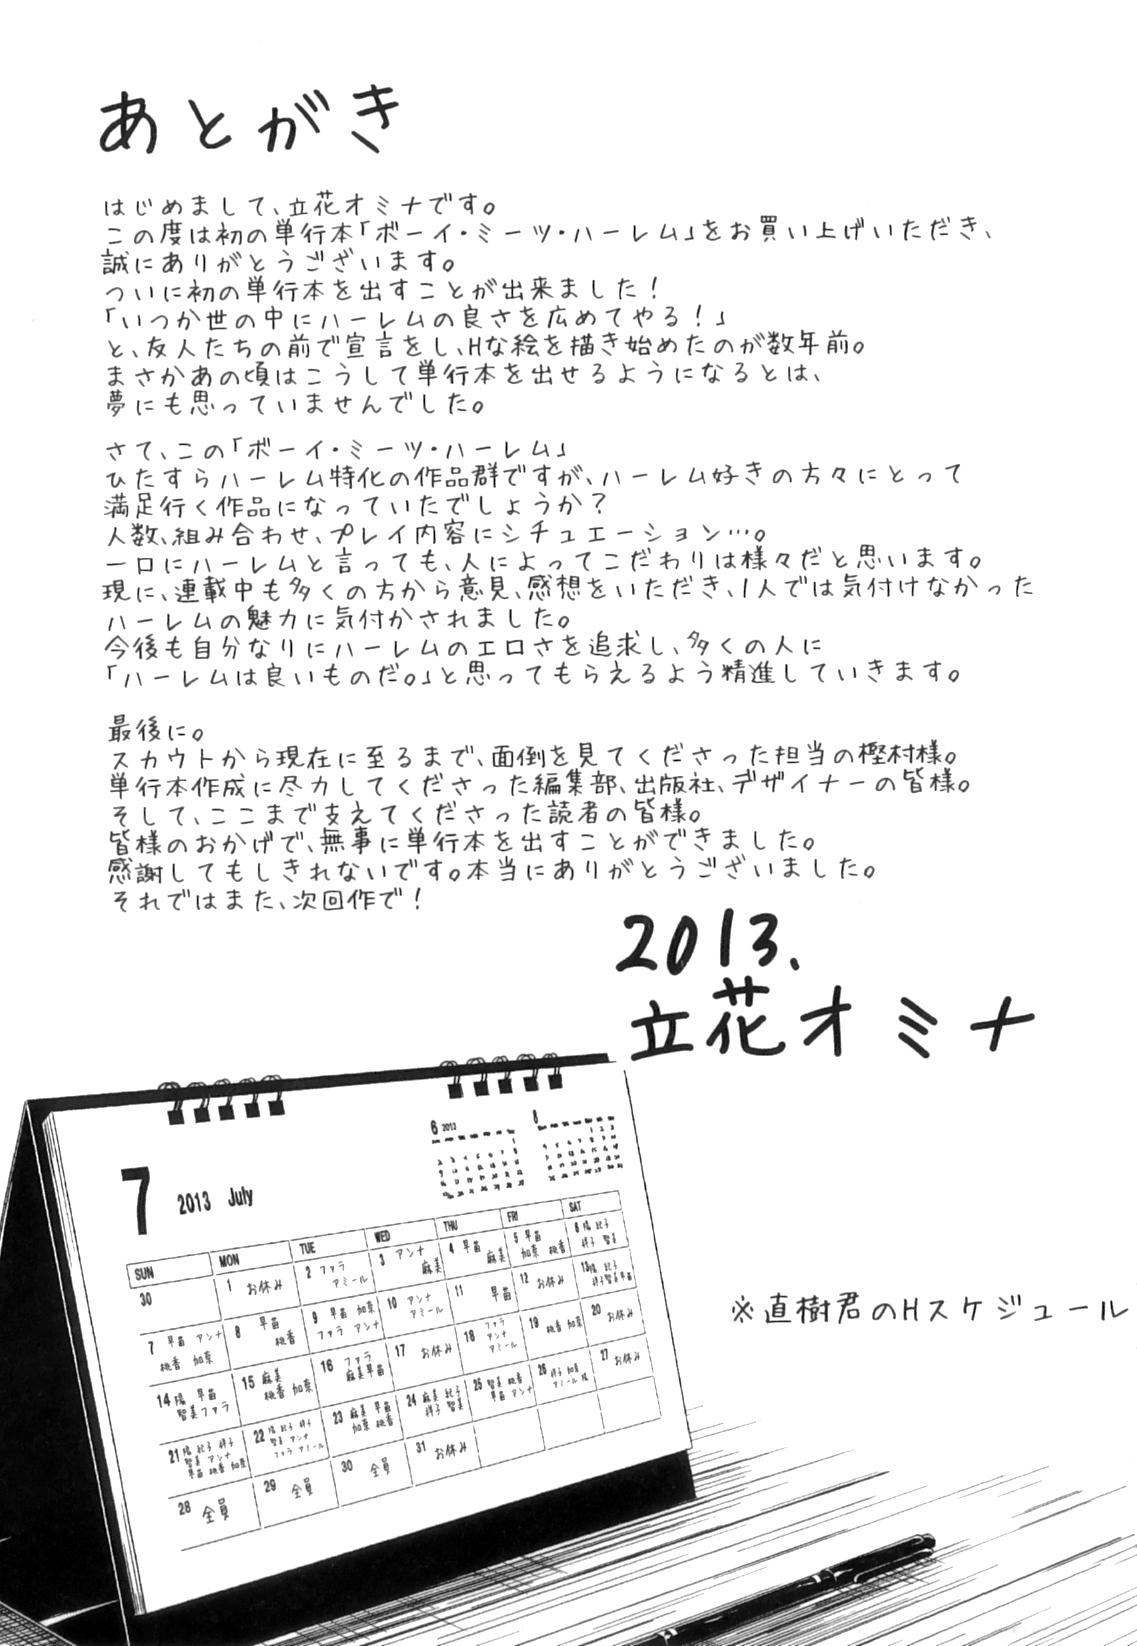 あとがき
はじめまして、立花オミナです。
この度は初の単行本「ボーイ・ミーツ・ハーレム」をお買い上げいただき、
誠にありがとうございます。
ついに初の単行本を出すことが出来ました！
「いつか世の中にハーレムの良さを広めてやる！」
と、友人たちの前で宣言をし、Hな絵を描き始めたのが数年前。
まさかあの頃はこうして単行本を出せるようになるとは、
夢にも思っていませんでした。
さて、この「ボーイ・ミーツ・ハーレム」
ひたすらハーレム特化の作品群ですが、ハーレム好きの方々にとって
満足行く作品になっていたでしょうか？
人数、組み合わせ、プレイ内容にシチュエーション…。
一口にハーレムと言っても、人によってこだわりは様々だと思います。
現に、連載中も多くの方から意見、感想をいただき、1人では気付けなかった
ハーレムの魅力に気付かされました。
今後も自分なりにハーレムのエロさを追求し、多くの人に
「ハーレムは良いものだ。」と思ってもらえるよう精進していきます。
最後に。
スカウトから現在に至るまで、面倒を見てくださった担当の樫村様。
単行本作成に尽力してくださった編集部、出版社、デザイナーの皆様。
そして、ここまで支えてくださった読者の皆様。
皆様のおかげで、無事に単行本を出すことができました。
感謝してもしきれないです。本当にありがとうございました。
それではまた、次回作で！
2013.
立花オミナ
6 2013
8
7 2013 July
SUN MON TUE WED THU FRI SAT
30
1 お休み
2 ファラ アミール
3 アンナ 麻美
4 早苗 麻美
5 早苗 加奈 桃香
6 陽 妃子 祥子 智美
7 早苗 アンナ 桃香 加奈
8 早苗 桃香
9 早苗 加奈 ファラ アンナ
10 アンナ アミール
11 早苗
12 お休み
13 陽 妃子 祥子 智美 早苗
14 陽 早苗 智美 ファラ
15 麻美 桃香 加奈
16 ファラ 麻美 早苗
17 お休み
18 ファラ アンナ アミール
19 桃香 加奈
20 お休み
21 陽 妃子 祥子 智美 アンナ 早苗 桃香 加奈
22 陽 妃子 祥子 智美 アンナ ファラ アミール
23 麻美 早苗 加奈 桃香
24 麻美 妃子 祥子 智美
25 智美 桃香 早苗 アンナ
26 祥子 加奈 アミール 陽
27 お休み
28 全員
29 全員
30 全員
31 お休み
※直樹君のHスケジュール